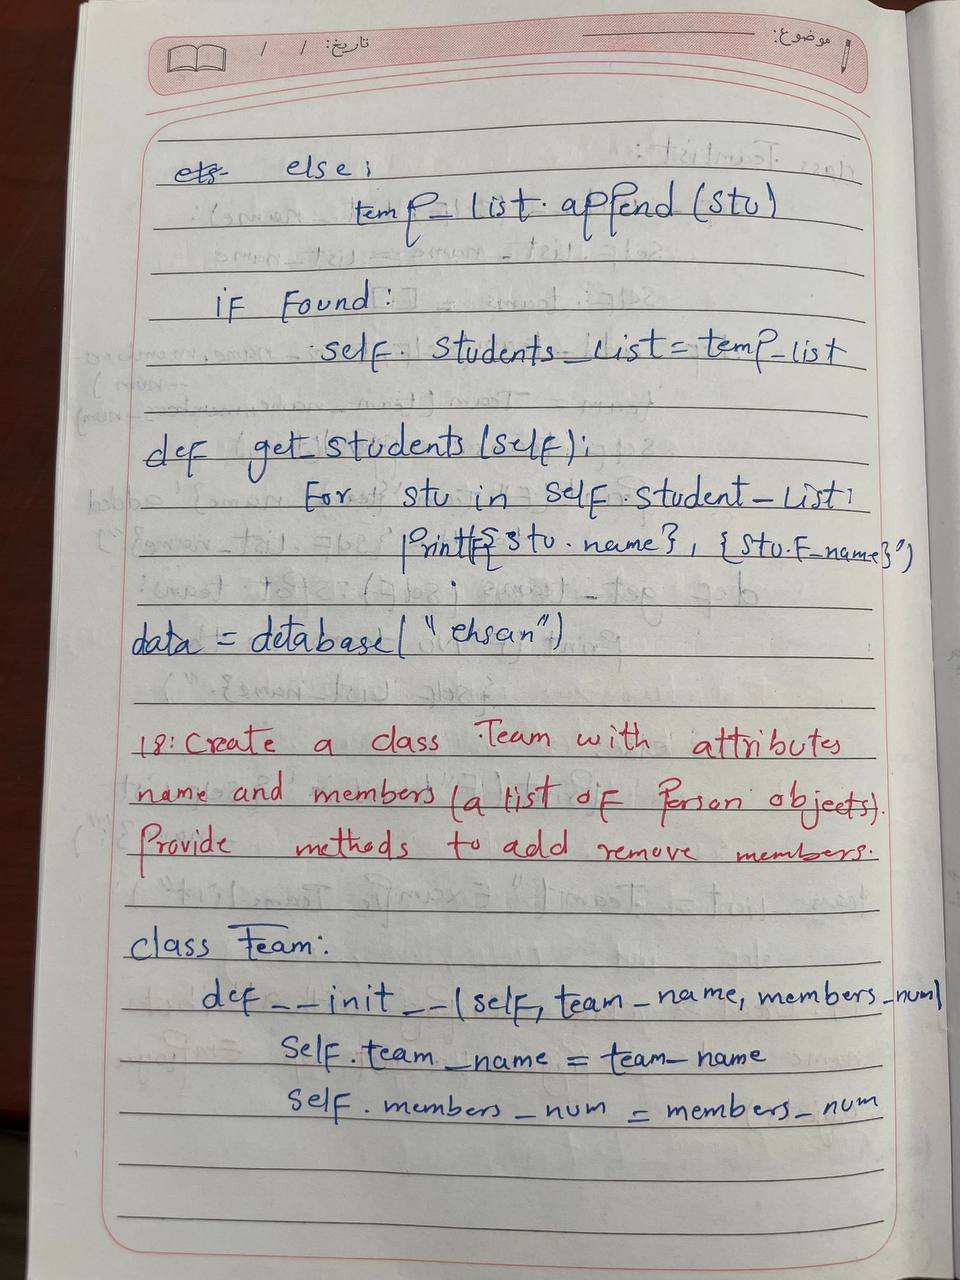 موضوع:
تاریخ: / /
else:
temp_list.append(stu)
if found:
self.students_list = temp_list
def get_students(self):
for stu in self.student_list:
print(f"{stu.name}, {stu.f_name}")
data = detabase("ehsan")
18: Create a class Team with attributes
name and members (a list of Person objects).
Provide methods to add remove members.
class Team:
def __init__(self, team_name, members_num)
self.team_name = team_name
self.members_num = members_num